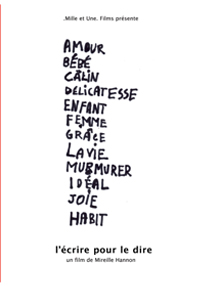 .Mille et Une. Films présente
AMOUR
BÉBÉ
CÂLIN
DÉLICATESSE
ENFANT
FEMME
GRÂCE
LA VIE
MURMURER
IDÉAL
JOIE
HABIT
l'écrire pour le dire
un film de Mireille Hannon